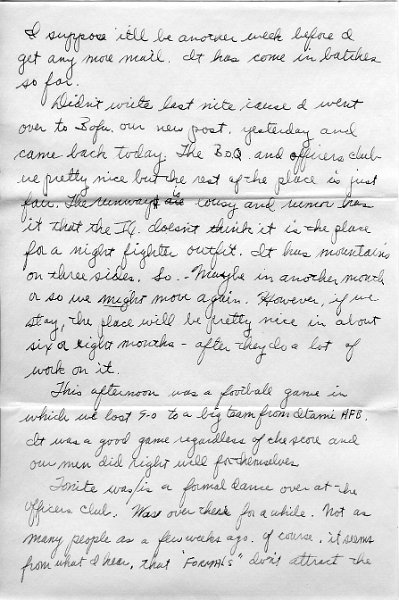 I suppose it'll be another week before I
get any more mail. It has come in batches
so far.
Didn't write last nite, 'cause I went
over to Bofu, our new post, yesterday and
came back today. The BOQ and officers club
're pretty nice but the rest of the place is just
fair. The runway is lousy and rumor has
it that the I.G. doesn't think it is the place
for a night fighter outfit. It has mountains
on three sides. So.- Maybe in another month
or so we might move again. However, if we
stay, the place will be pretty nice in about
six or eight months - after they do a lot of
work on it.
This afternoon was a football game in
which we lost 5-0 to a big team from Itami AFB.
It was a good game regardless of the score and
our men did right well for themselves
Tonite was/is a formal dance over at the
officers club. Was over there for a while. Not as
many people as a few weeks ago. Of course, it seems
from what I hear, that "FORMALS" don't attract the